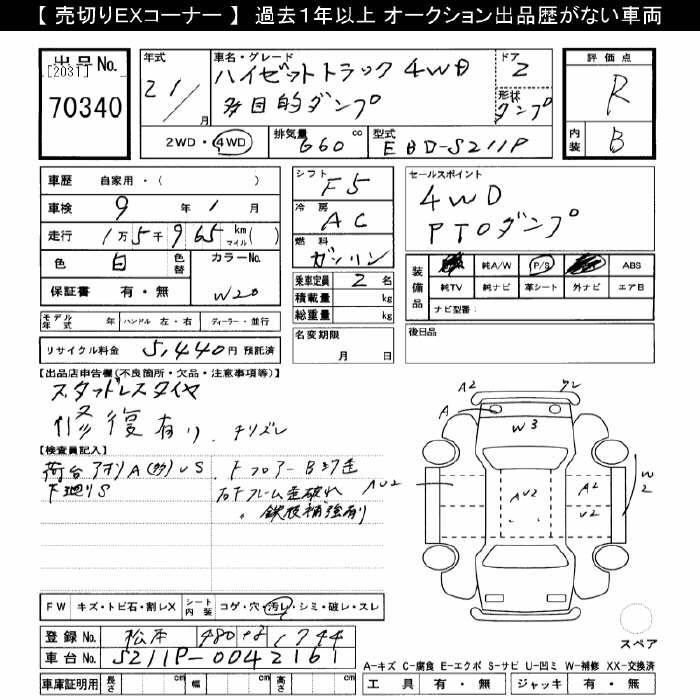 【 売切りEXコーナー 】 過去1年以上 オークション出品歴がない車両
出品No.
[2031]
70340
年式
21/
月
車名・グレード
ハイゼットトラック 4WD
多目的ダンプ
ドア
2
形状
ダンプ
2WD・4WD
排気量
660 cc
型式
EBD-S211P
評価点
R
内装
B
車歴 自家用・( )
車検 9 年 1 月
走行 1万5千965 km マイル( )
色 白 色替 カラーNo.
W20
保証書 有・無
シフト
F5
冷房
AC
燃料
ガソリン
乗車定員 2 名
積載量 kg
総重量 kg
セールスポイント
4WD
PTOダンプ
装備品
純A/W P/S ABS
純TV 純ナビ 革シート 外ナビ エアB
ナビ型番:
モデル年式 年 ハンドル 左・右 ディーラー・並行
リサイクル料金 5,440円 預託済
名変期限
月 日
後日品
【出品店申告欄(不良箇所・欠品・注意事項等)】
スタッドレスタイヤ
修復有り.
【検査員記入】
荷台アオリA(多)US.
下廻りS
鉄板補強有り
FW キズ・トビ石・割レX シート内装 コゲ・穴・汚レ・シミ・破レ・スレ
登録No. 松本 480 1744
車台No. S211P-0042161
車庫証明用 長さ cm 幅 cm 高さ cm
A2
A
W3
AU2
AU2
A2
U2
W2
スペア
A-キズ C-腐食 E-エクボ S-サビ U-凹ミ W-補修 XX-交換済
工具 有・無 ジャッキ 有・無